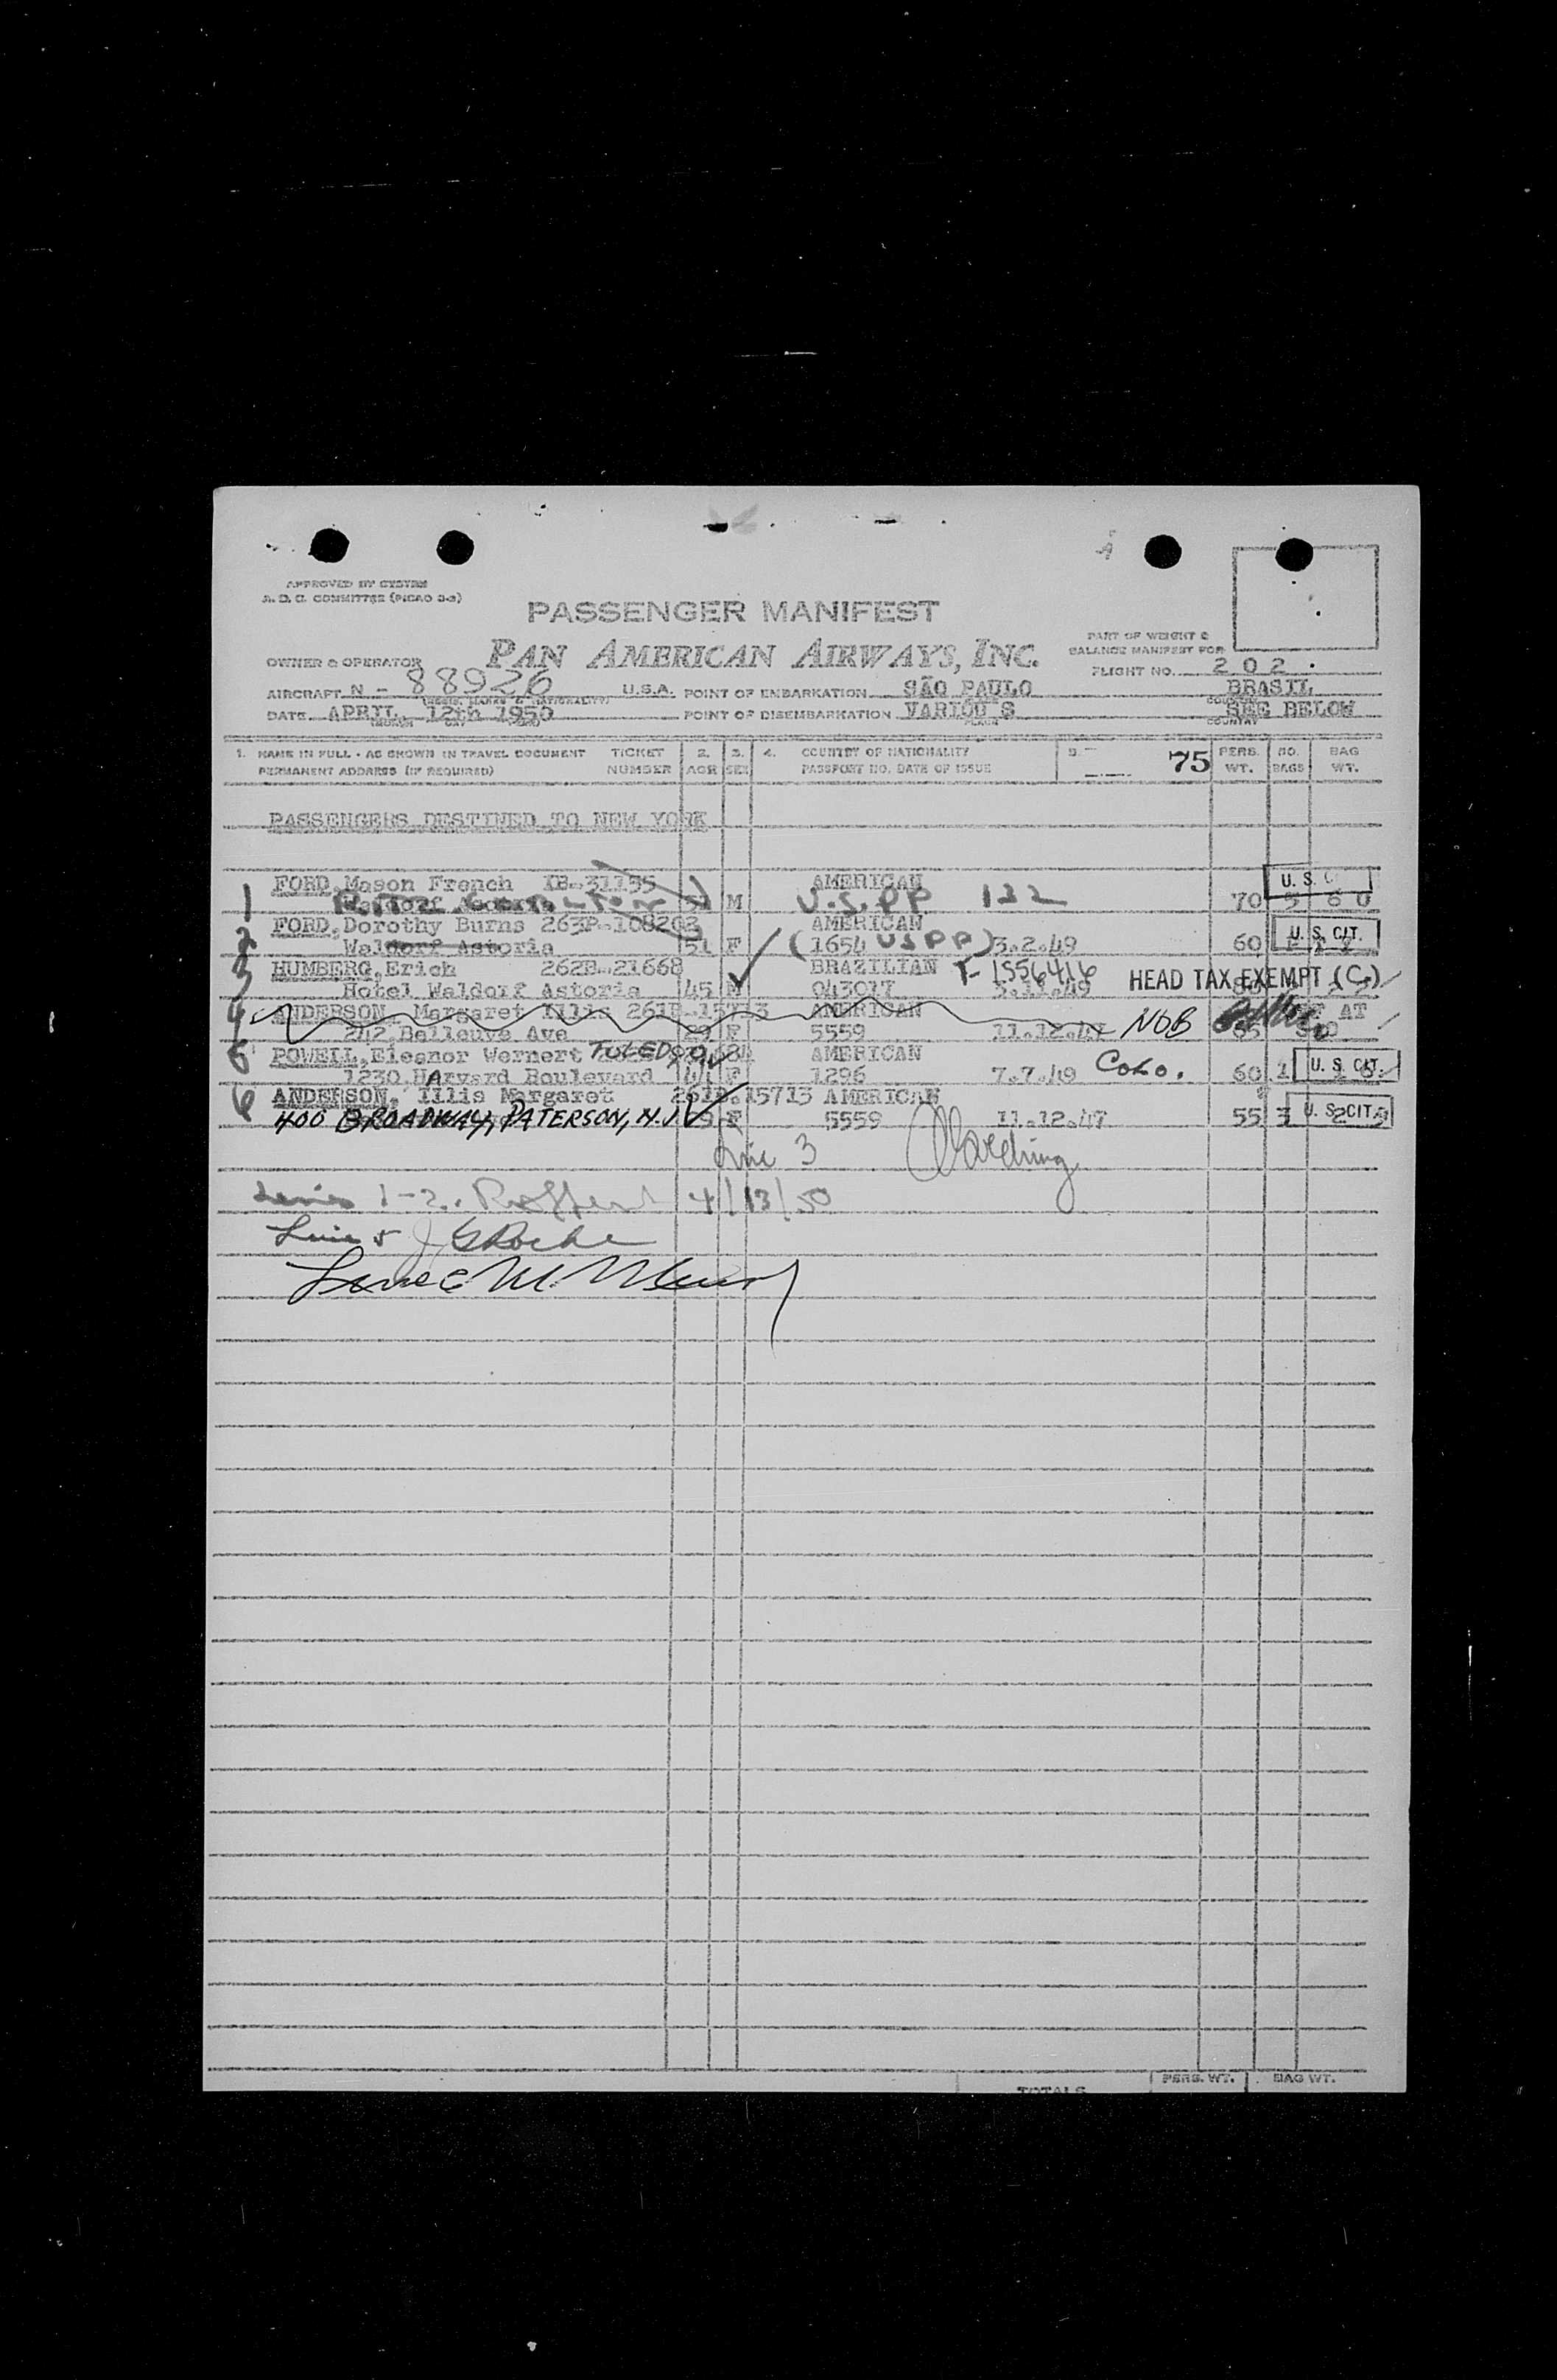 APPROVED BY SYSTEM
A. D. C. COMMITTEE (PICAO 3-3)
PASSENGER MANIFEST
PAN AMERICAN AIRWAYS, INC.
PART OF WEIGHT &
BALANCE MANIFEST FOR
OWNER & OPERATOR
FLIGHT NO. 202
AIRCRAFT N - 88926 U.S.A. POINT OF EMBARKATION SÃO PAULO BRASIL
DATE APRIL 12th 1950 POINT OF DISEMBARKATION VARIOU S SEE BELOW
MONTH PLACE COUNTRY
1. NAME IN FULL - AS SHOWN IN TRAVEL DOCUMENT TICKET 2. 3. 4. COUNTRY OF NATIONALITY 5. 75 PERS. NO. BAG
PERMANENT ADDRESS (IF REQUIRED) NUMBER AGE SEX PASSPORT NO. DATE OF ISSUE WT. BAGS WT.
PASSENGERS DESTINED TO NEW YORK
FORD, Mason French IB-31155 AMERICAN U. S.
1 M U.S. PP 122 70
FORD, Dorothy Burns 263P-108203 AMERICAN
2 Waldorf Astoria 51 F (1654 US PP) 3.2.49 60 U. S. CIT.
3 HUMBERG, Erich 262B-21668 BRAZILIAN
Hotel Waldorf Astoria 45 M 043017 3.11.49 HEAD TAX EXEMPT (C.)
4 ANDERSON, Margaret Illis AMERICAN AT
242 Belleuve Ave 29 F 5559 11.12.47 NOB
5 POWELL, Eleanor Wernert TOLEDO, O. AMERICAN
1230 Harvard Boulevard 44 F 1296 7.7.49 60 1 U. S. CIT.
6 ANDERSON, Illis Margaret 261B.15713 AMERICAN
400 BROADWAY, PATERSON, N.J. F 5559 11.12.47 55 3 U. S. CIT.
Line 3
Lines 1-2. 4/13/50
Line 5
Line 6
TOTALS PERS. WT. BAG WT.